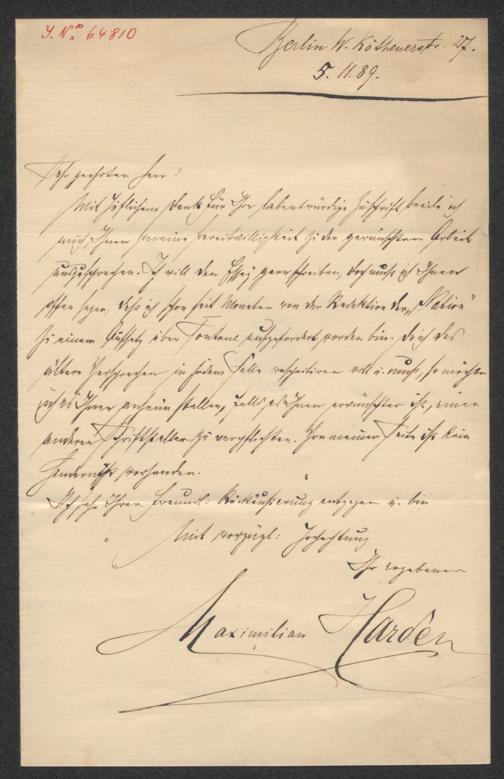 J. No 64810
Berlin W. Köthenerstr. 27.
5. 11. 89.
Sehr geehrter Herr!
Mit höflichem Dank für Ihre liebenswürdige Zuschrift beeile ich
mich, Ihnen meine Bereitwilligkeit zu der gewünschten Arbeit
auszusprechen. Ich will den Essay gern schreiben, doch muß ich Ihnen
offen sagen, daß ich schon seit Monaten von der Redaktion der „Nation"
zu einem Aufsatz über Fontane aufgefordert worden bin. Da ich das
ältere Versprechen in jedem Falle respectiren will u. muß, so möchte
ich es Ihnen anheim stellen, falls es Ihnen erwünschter ist, einen
anderen Schriftsteller zu verpflichten. Von meiner Seite ist kein
Hinderniß vorhanden.
Ich sehe Ihrer freundl: Rückäußerung entgegen u. bin
Mit vorzügl: Hochachtung
Ihr ergebener
Maximilian Harden